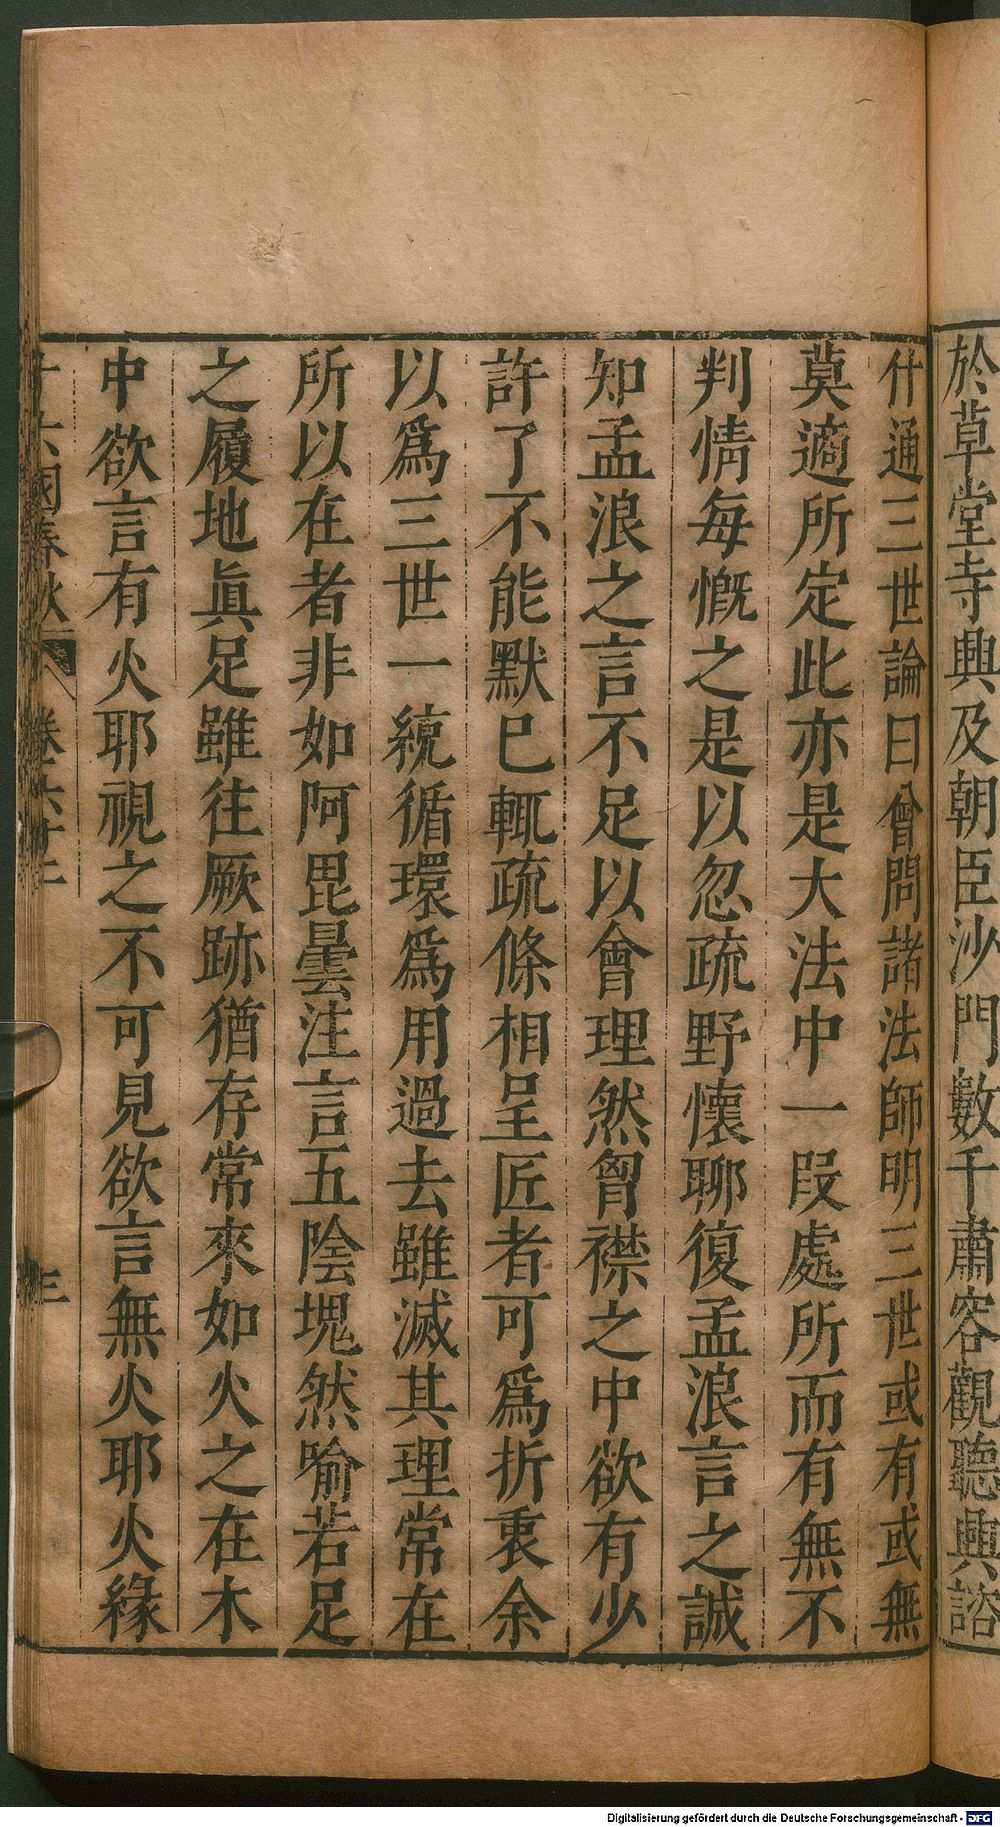 於草堂寺興及朝臣沙門數千肅容觀聽興諮
什通三世論曰曾問諸法師明三世或有或無
莫適所定此亦是大法中一段處所而有無不
判情每慨之是以忽疏野懷聊復孟浪言之誠
知孟浪之言不足以會理然胷襟之中欲有少
許了不能默巳輒疏條相呈匠者可爲折衷余
以爲三世一統循環爲用過去雖滅其理常在
所以在者非如阿毘曇注言五陰塊然喻若足
之履地眞足雖往厥跡猶存常來如火之在木
中欲言有火耶視之不可見欲言無火耶火緣
十六國春秋 卷六十二 三
Digitalisierung gefördert durch die Deutsche Forschungsgemeinschaft - DFG